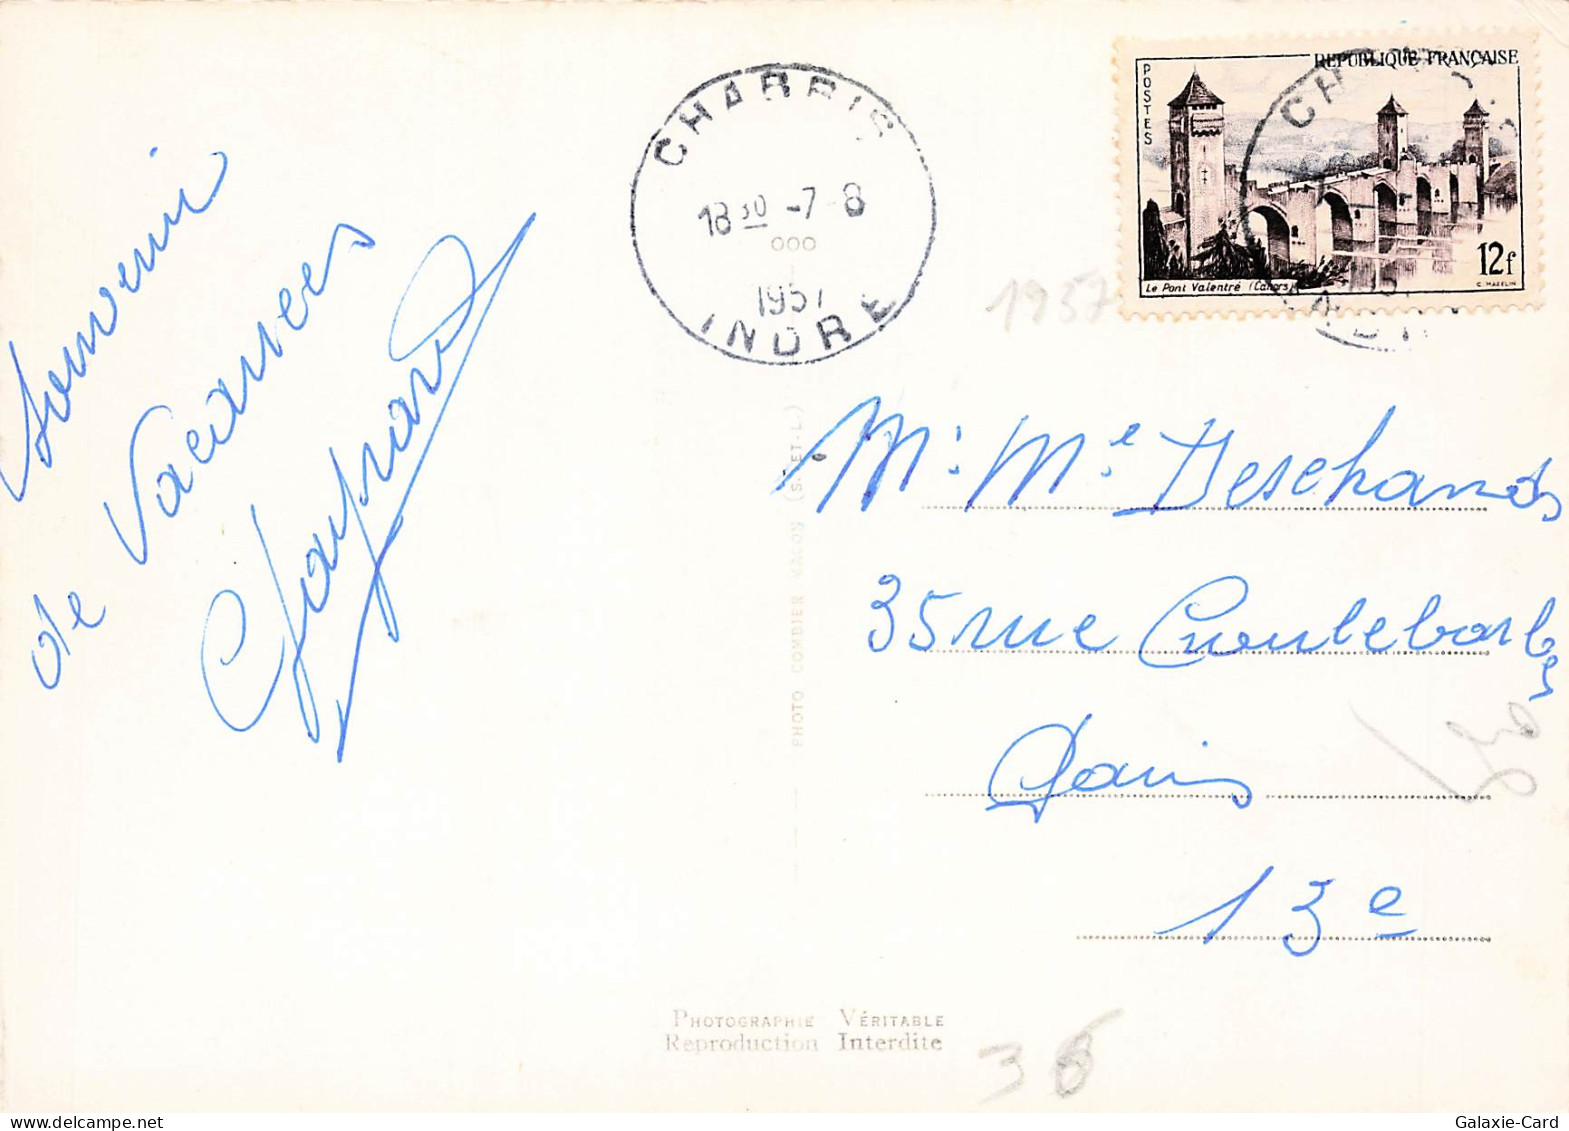 Souvenir
de Vacances
CHABRIS
18 30 -7-8
000
1957
INDRE
1957
POSTES
REPUBLIQUE FRANÇAISE
Le Pont Valentré (Cahors)
12f
C. MAZELIN
CH
M. Me Deschamds
35 rue Croulebarbe
Paris
13e
PHOTO COMBIER MACON (S.-ET-L.)
PHOTOGRAPHIE VÉRITABLE
Reproduction Interdite
36
delcampe.net
Galaxie-Card